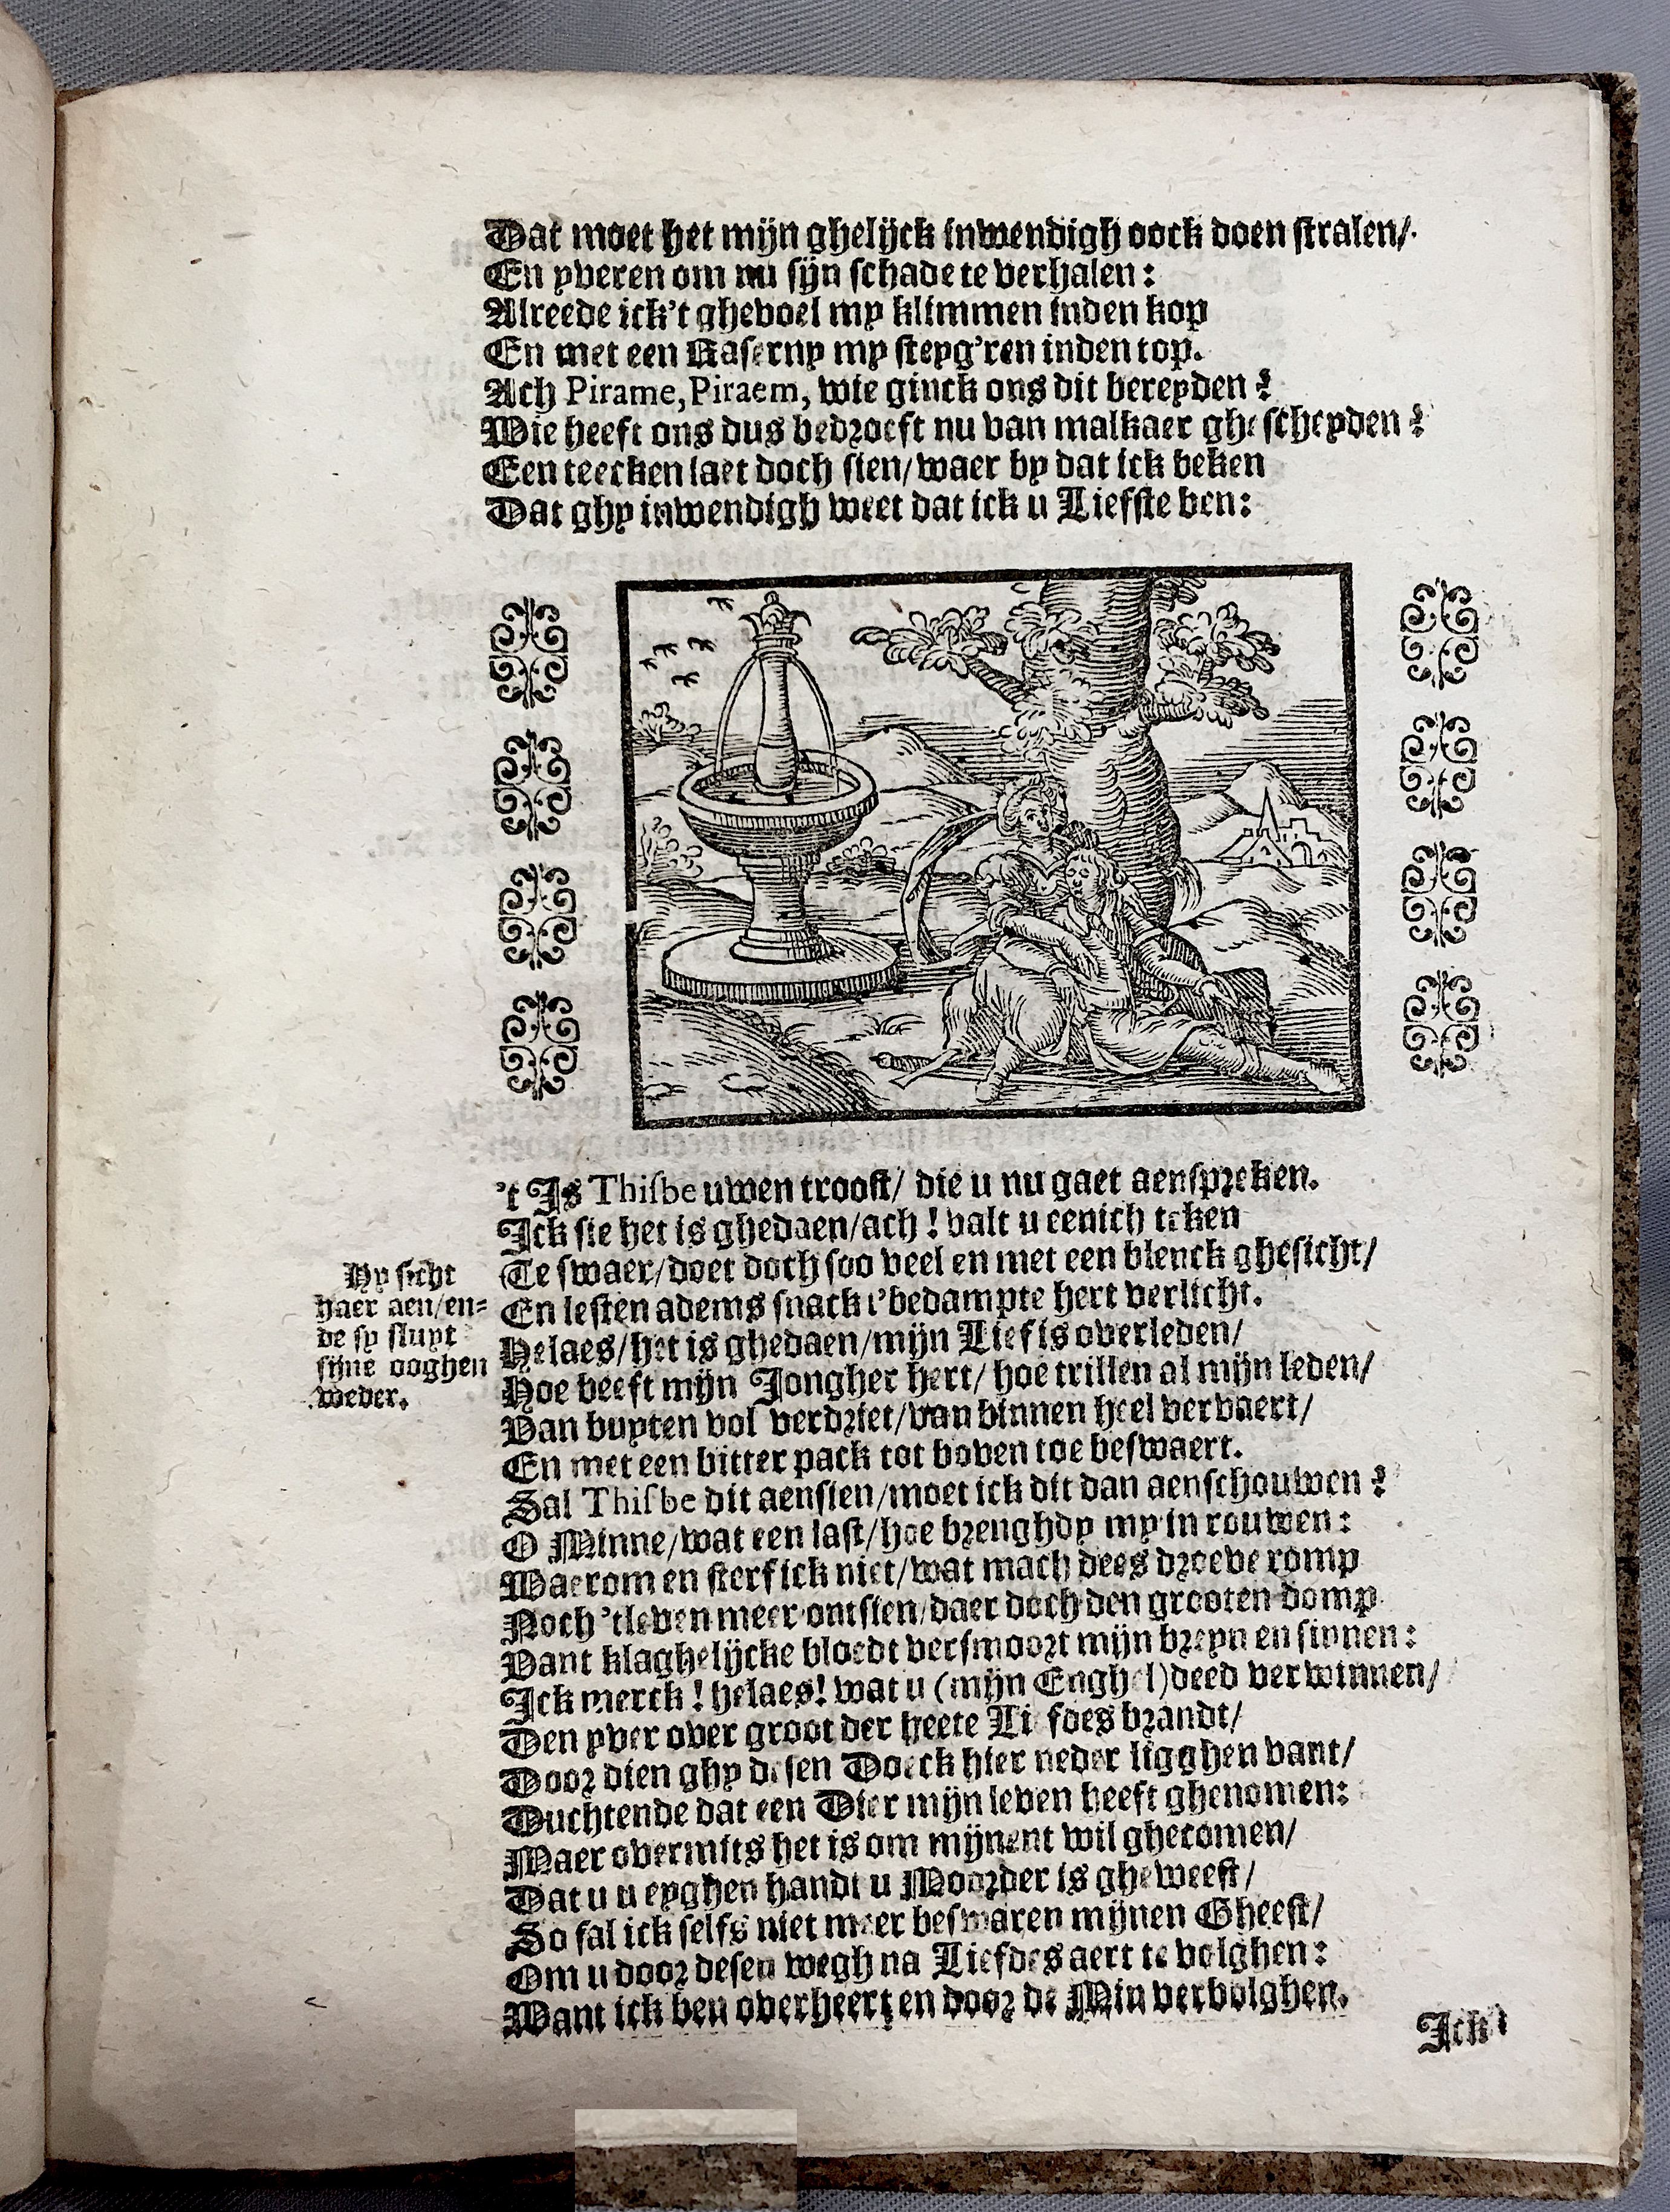 Dat moet het mijn ghelijck inwendigh oock doen stralen/
En yveren om nu sijn schade te verhalen:
Alreede ick't ghevoel my klimmen inden kop
En met een Raserny my steyg'ren inden top.
Ach Pirame, Piraem, wie ginck ons dit bereyden?
Wie heeft ons dus bedroeft nu van malkaer ghescheyden?
Een teecken laet doch sien/ waer by dat ick beken
Dat ghy inwendigh weet dat ick u Liefste ben:
't Is Thisbe uwen troost/ die u nu gaet aenspreken.
Ick sie het is ghedaen/ach! valt u eenich teken
Te swaer/doet doch soo veel en met een blenck ghesicht/
En lesten adems snack t'bedampte hert verlicht.
Hy sieht
haer aen/en-
de sy sluyt
sijne ooghen
weder.
Helaes/het is ghedaen/mijn Lief is overleden/
Hoe beeft mijn Jongher hert/ hoe trillen al mijn leden/
Van buyten vol verdriet/van binnen heel vervaert/
En met een bitter pack tot boven toe beswaert.
Sal Thisbe dit aensien/moet ick dit dan aenschouwen?
O Minne/wat een last/hoe brenghdy my in rouwen:
Waerom en sterf ick niet/wat mach dees droeve romp
Noch 'tleven meer ontsien/daer doch den grooten domp
Vant klaghelijcke bloedt versmoort mijn breyn en sinnen:
Ick merck! helaes! wat u (mijn Enghel) deed verwinnen/
Den yver over groot der heete Liefdes brandt/
Door dien ghy desen Doeck hier neder ligghen vant/
Duchtende dat een Dier mijn leven heeft ghenomen:
Maer overmits het is om mijnent wil ghecomen/
Dat u u eyghen handt u Moorder is gheweest/
So sal ick selfs niet meer beswaren mijnen Gheest/
Om u door desen wegh na Liefdes aert te volghen:
Want ick ben overheert en door de Min vervolghen.
Ick